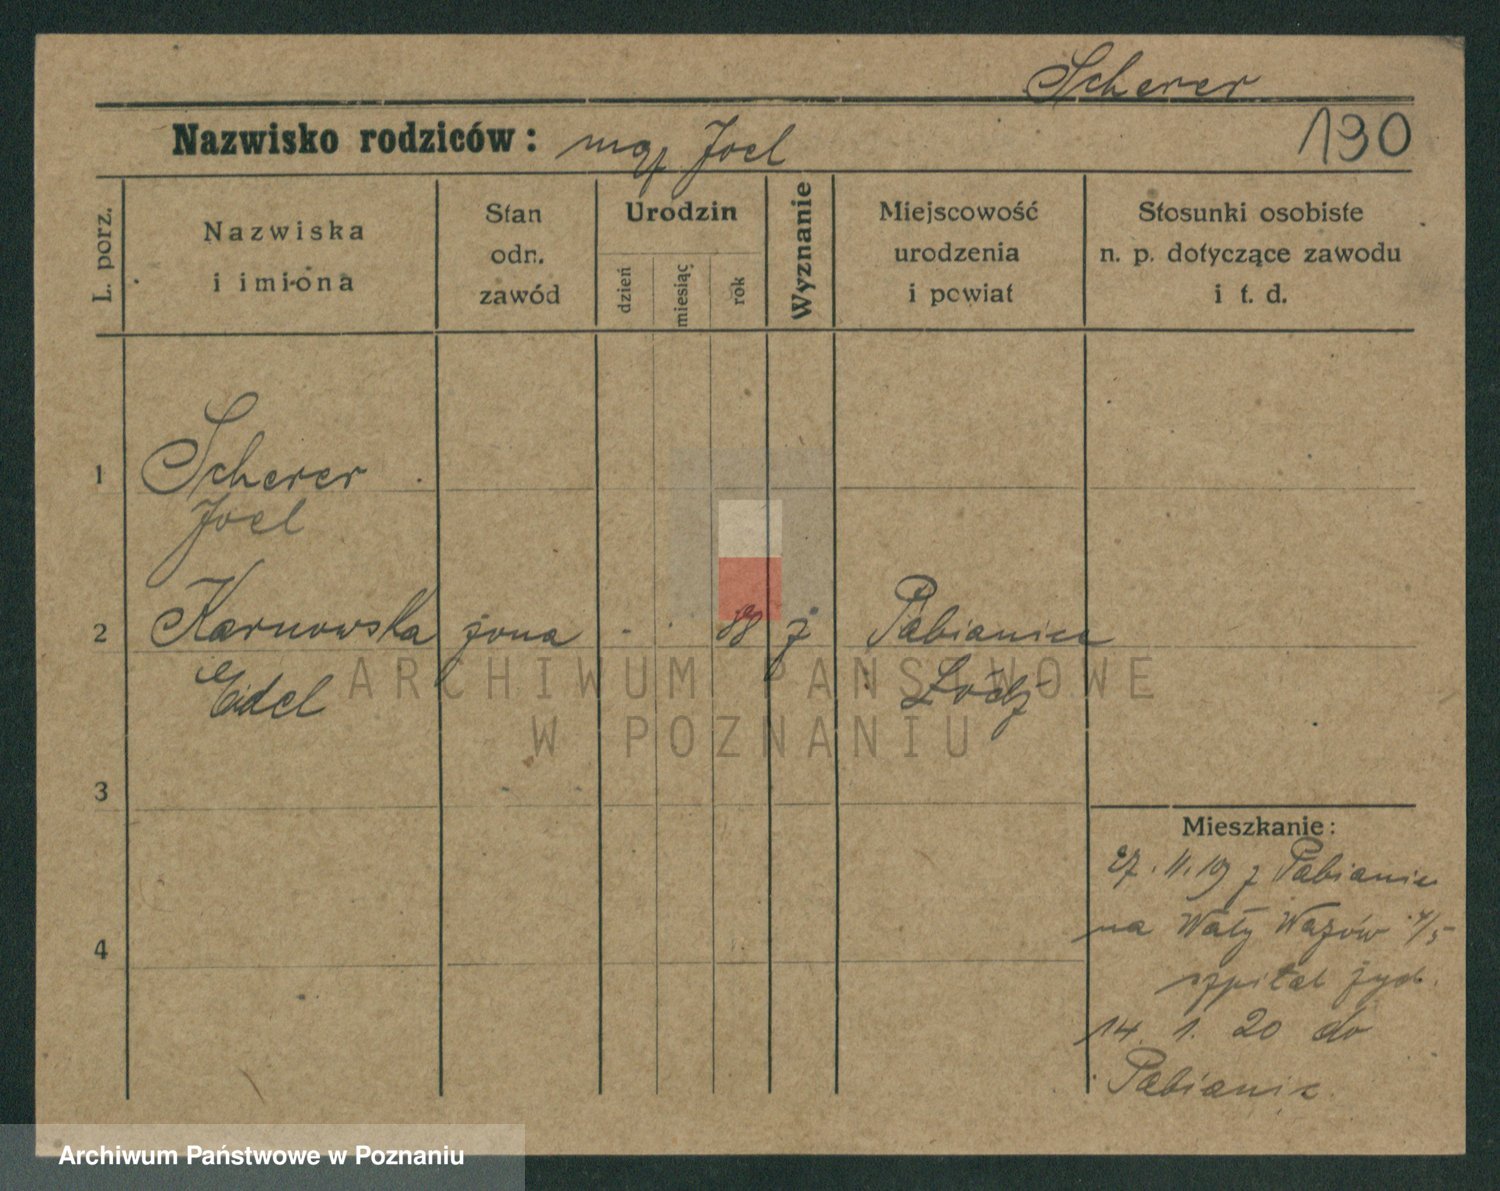 Scherer
Nazwisko rodziców: mąż Joel
190
L. porz.
Nazwiska
i imiona
Stan
odn.
zawód
Urodzin
dzień
miesiąc
rok
Wyznanie
Miejscowość
urodzenia
i powiat
Stosunki osobiste
n. p. dotyczące zawodu
i t. d.
1
Scherer
Joel
2
Karnowska żona 88 ż Pabianice
Edel Łódź
ARCHIWUM PAŃSTWOWE
W POZNANIU
3
4
Mieszkanie:
27. 11. 19 z Pabianic
na Wały Wazów 4/5
szpital żyd.
14. 1. 20 do
Pabianic
Archiwum Państwowe w Poznaniu